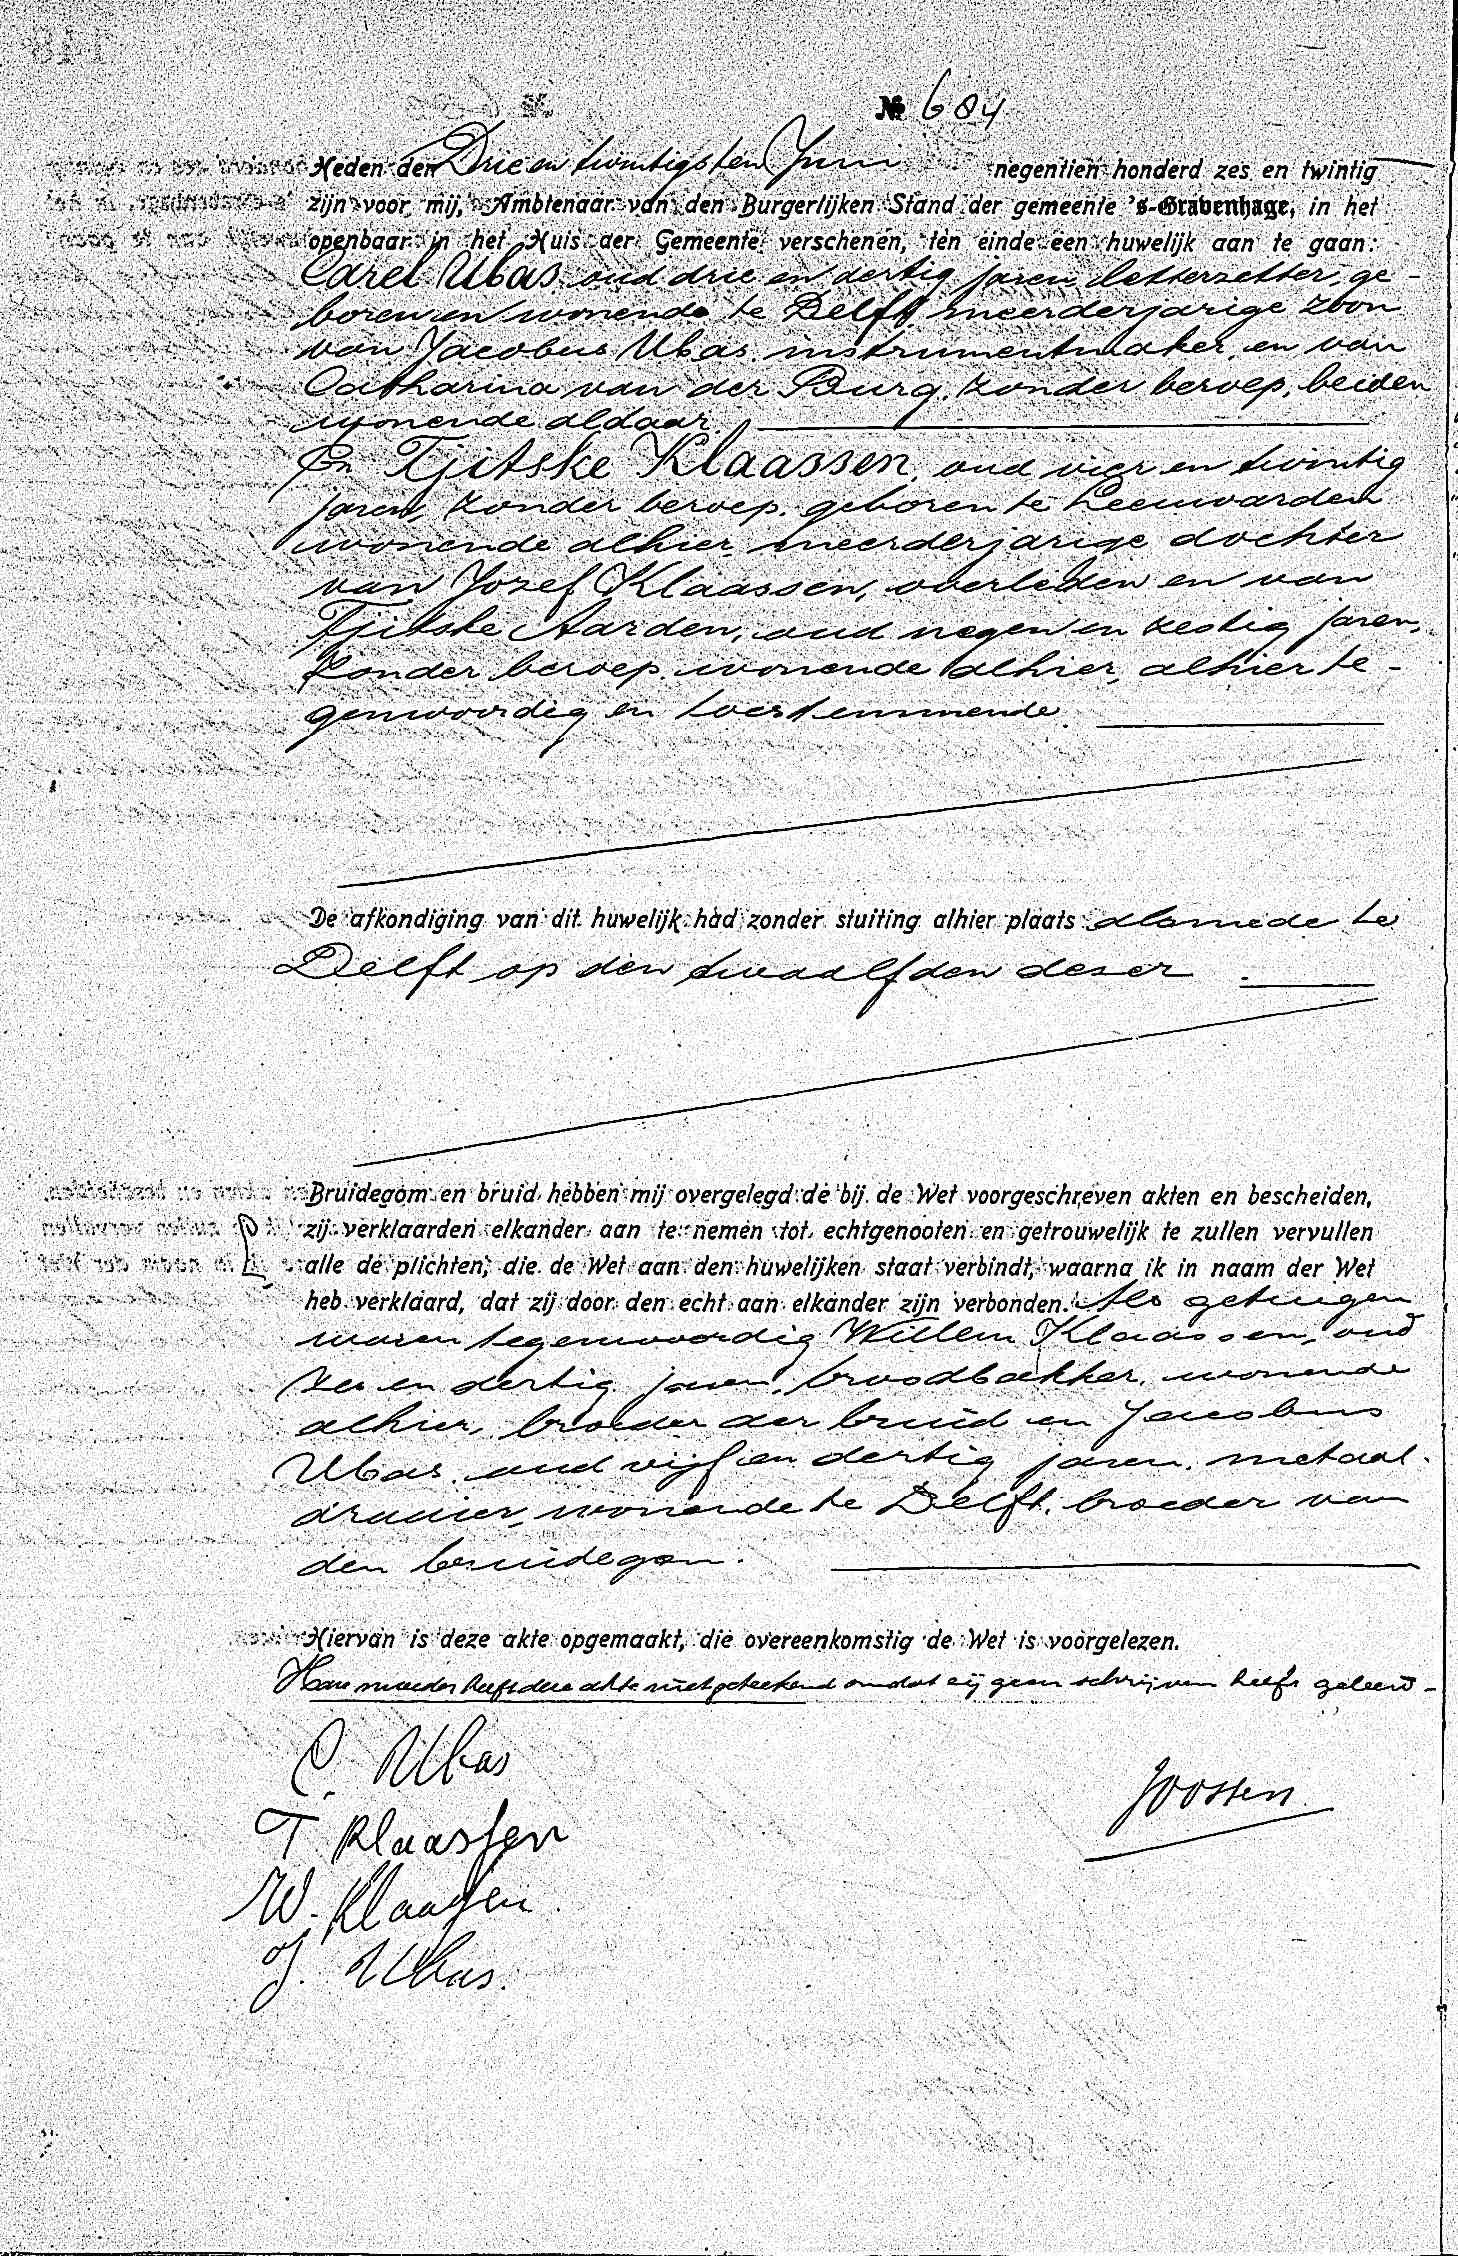 № 684
Heden den Drie en twintigsten Juni negentien honderd zes en twintig
zijn voor mij, Ambtenaar van den Burgerlijken Stand der gemeente 's-Gravenhage, in het
openbaar in het Huis der Gemeente verschenen, ten einde een huwelijk aan te gaan:
Carel Ubas, oud drie en dertig jaren, letterzetter, ge-
boren en wonende te Delft, meerderjarige zoon
van Jacobus Ubas, instrumentmaker, en van
Catharina van der Burg, zonder beroep, beiden
wonende aldaar.
En Tjitske Klaassen, oud vier en twintig
jaren, zonder beroep, geboren te Leeuwarden
wonende alhier, meerderjarige dochter
van Jozef Klaassen, overleden en van
Tjitske Aarden, oud negen en zestig jaren,
zonder beroep, wonende alhier, alhier te-
genwoordig en toestemmende.
De afkondiging van dit huwelijk had zonder stuiting alhier plaats alsmede te
Delft op den twaalfden dezer.
Bruidegom en bruid hebben mij overgelegd de bij de Wet voorgeschreven akten en bescheiden,
zij verklaarden elkander aan te nemen tot echtgenooten en getrouwelijk te zullen vervullen
alle de plichten, die de Wet aan den huwelijken staat verbindt, waarna ik in naam der Wet
heb verklaard, dat zij door den echt aan elkander zijn verbonden. Als getuigen
waren tegenwoordig Willem Klaassen, oud
zes en dertig jaren, broodbakker, wonende
alhier, broeder der bruid en Jacobus
Ubas, oud vijf en dertig jaren, metaal-
draaier, wonende te Delft, broeder van
den bruidegom.
Hiervan is deze akte opgemaakt, die overeenkomstig de Wet is voorgelezen.
Hare moeder heeft deze akte niet geteekend omdat zij geen schrijven heeft geleerd-
C. Ubas
Joosten
T Klaassen
W. Klaassen
J. Ubas.